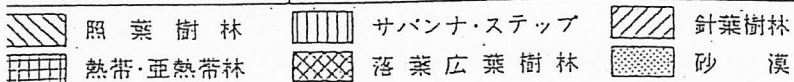 照葉樹林 サバンナ・ステップ 針葉樹林
熱帯・亜熱帯林 落葉広葉樹林 砂漠